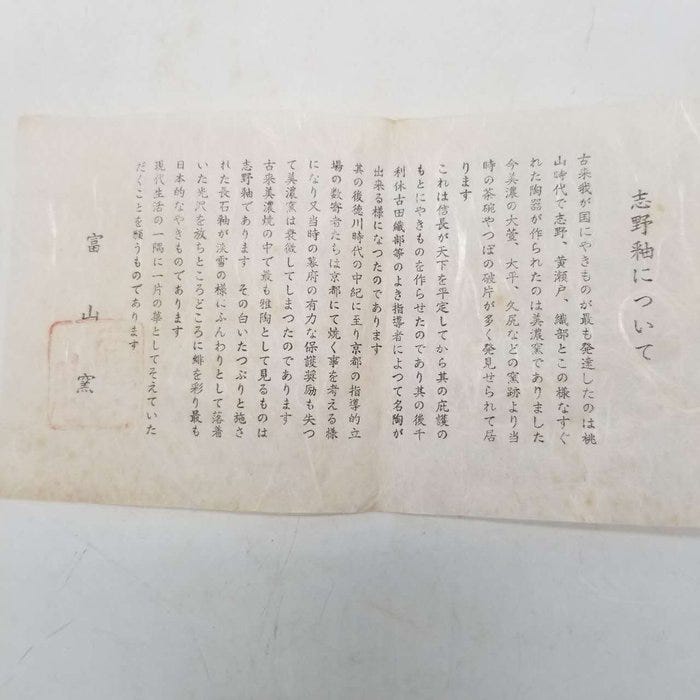 志野釉について
古来我が国にやきものが最も発達したのは桃
山時代で志野、黄瀬戸、織部とこの様なすぐ
れた陶器が作られたのは美濃窯でありました
今美濃の大萱、大平、久尻などの窯跡より当
時の茶碗やつぼの破片が多く発見せられて居
ります
これは信長が天下を平定してから其の庇護の
もとにやきものを作らせたのであり其の後千
利休古田織部等のよき指導者によつて名陶が
出来る様になつたのであります
其の後徳川時代の中紀に至り京都の指導的立
場の数寄者たちは京都にて焼く事を考える様
になり又当時の幕府の有力な保護奨励も失つ
て美濃窯は衰微してしまつたのであります
古来美濃焼の中で最も雅陶として見るものは
志野釉であります その白いたつぷりと施さ
れた長石釉が淡雪の様にふんわりとして落着
いた光沢を放ちところどころに緋を彩り最も
日本的なやきものであります
現代生活の一隅に一片の華としてそえていた
だくことを願うものであります
富山窯